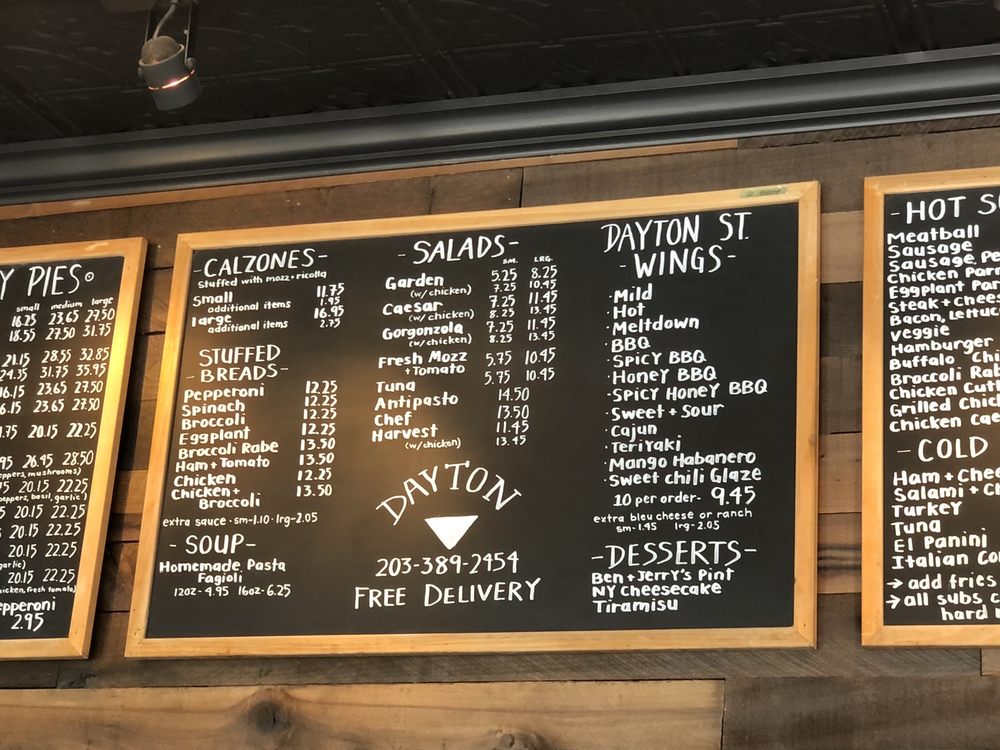 Y PIES
small medium large
16.25 23.65 27.50
18.55 27.50 31.75
21.15 28.55 32.85
24.35 31.75 35.95
16.15 23.65 27.50
6.15 23.65 27.50
1.75 20.15 22.25
95 26.95 28.50
eppers, mushrooms)
20.15 22.25
peppers, basil, garlic)
20.15 22.25
20.15 22.25
5 20.15 22.25
garlic)
20.15 22.25
chicken, fresh tomato)
epperoni
2.95
-CALZONES-
stuffed with mozz+ricotta
small 11.75
additional items 1.95
large 16.95
additional items 2.75
STUFFED
-BREADS-
Pepperoni 12.25
Spinach 12.25
Broccoli 12.25
Eggplant 12.25
Broccoli Rabe 13.50
Ham+Tomato 13.50
Chicken 12.25
Chicken+ 13.50
Broccoli
extra sauce·sm-1.10·lrg-2.05
-SOUP-
Homemade Pasta
Fagioli
12oz-4.95 16oz-6.25
-SALADS-
SM. LRG.
Garden 5.25 8.25
(w/chicken) 7.25 10.45
Caesar 7.25 11.45
(w/chicken) 8.25 13.45
Gorgonzola 7.25 11.45
(w/chicken) 8.25 13.45
Fresh Mozz 5.75 10.45
+Tomato
Tuna 5.75 10.45
Antipasto 14.50
Chef 13.50
Harvest 11.45
(w/chicken) 13.45
DAYTON
203-389-2454
FREE DELIVERY
DAYTON ST.
-WINGS-
·Mild
·Hot
·Meltdown
·BBQ
·Spicy BBQ
·Honey BBQ
·Spicy Honey BBQ
·Sweet+Sour
·Cajun
·Teriyaki
·Mango Habanero
·Sweet chili Glaze
10 per order- 9.45
extra bleu cheese or ranch
sm-1.45 lrg-2.05
-DESSERTS-
Ben+Jerry's Pint
NY Cheesecake
Tiramisu
-HOT S
Meatball
Sausage
Sausage, Pe
Chicken Parm
Eggplant Par
Steak+Chees
Bacon, Lettuc
Veggie
Hamburger
Buffalo Chi
Broccoli Rab
Chicken Cutl
Grilled Chick
Chicken Cae
-COLD
Ham+Chee
Salami+Ch
Turkey
Tuna
El Panini
Italian Co
→ add fries
→ all subs c
hard